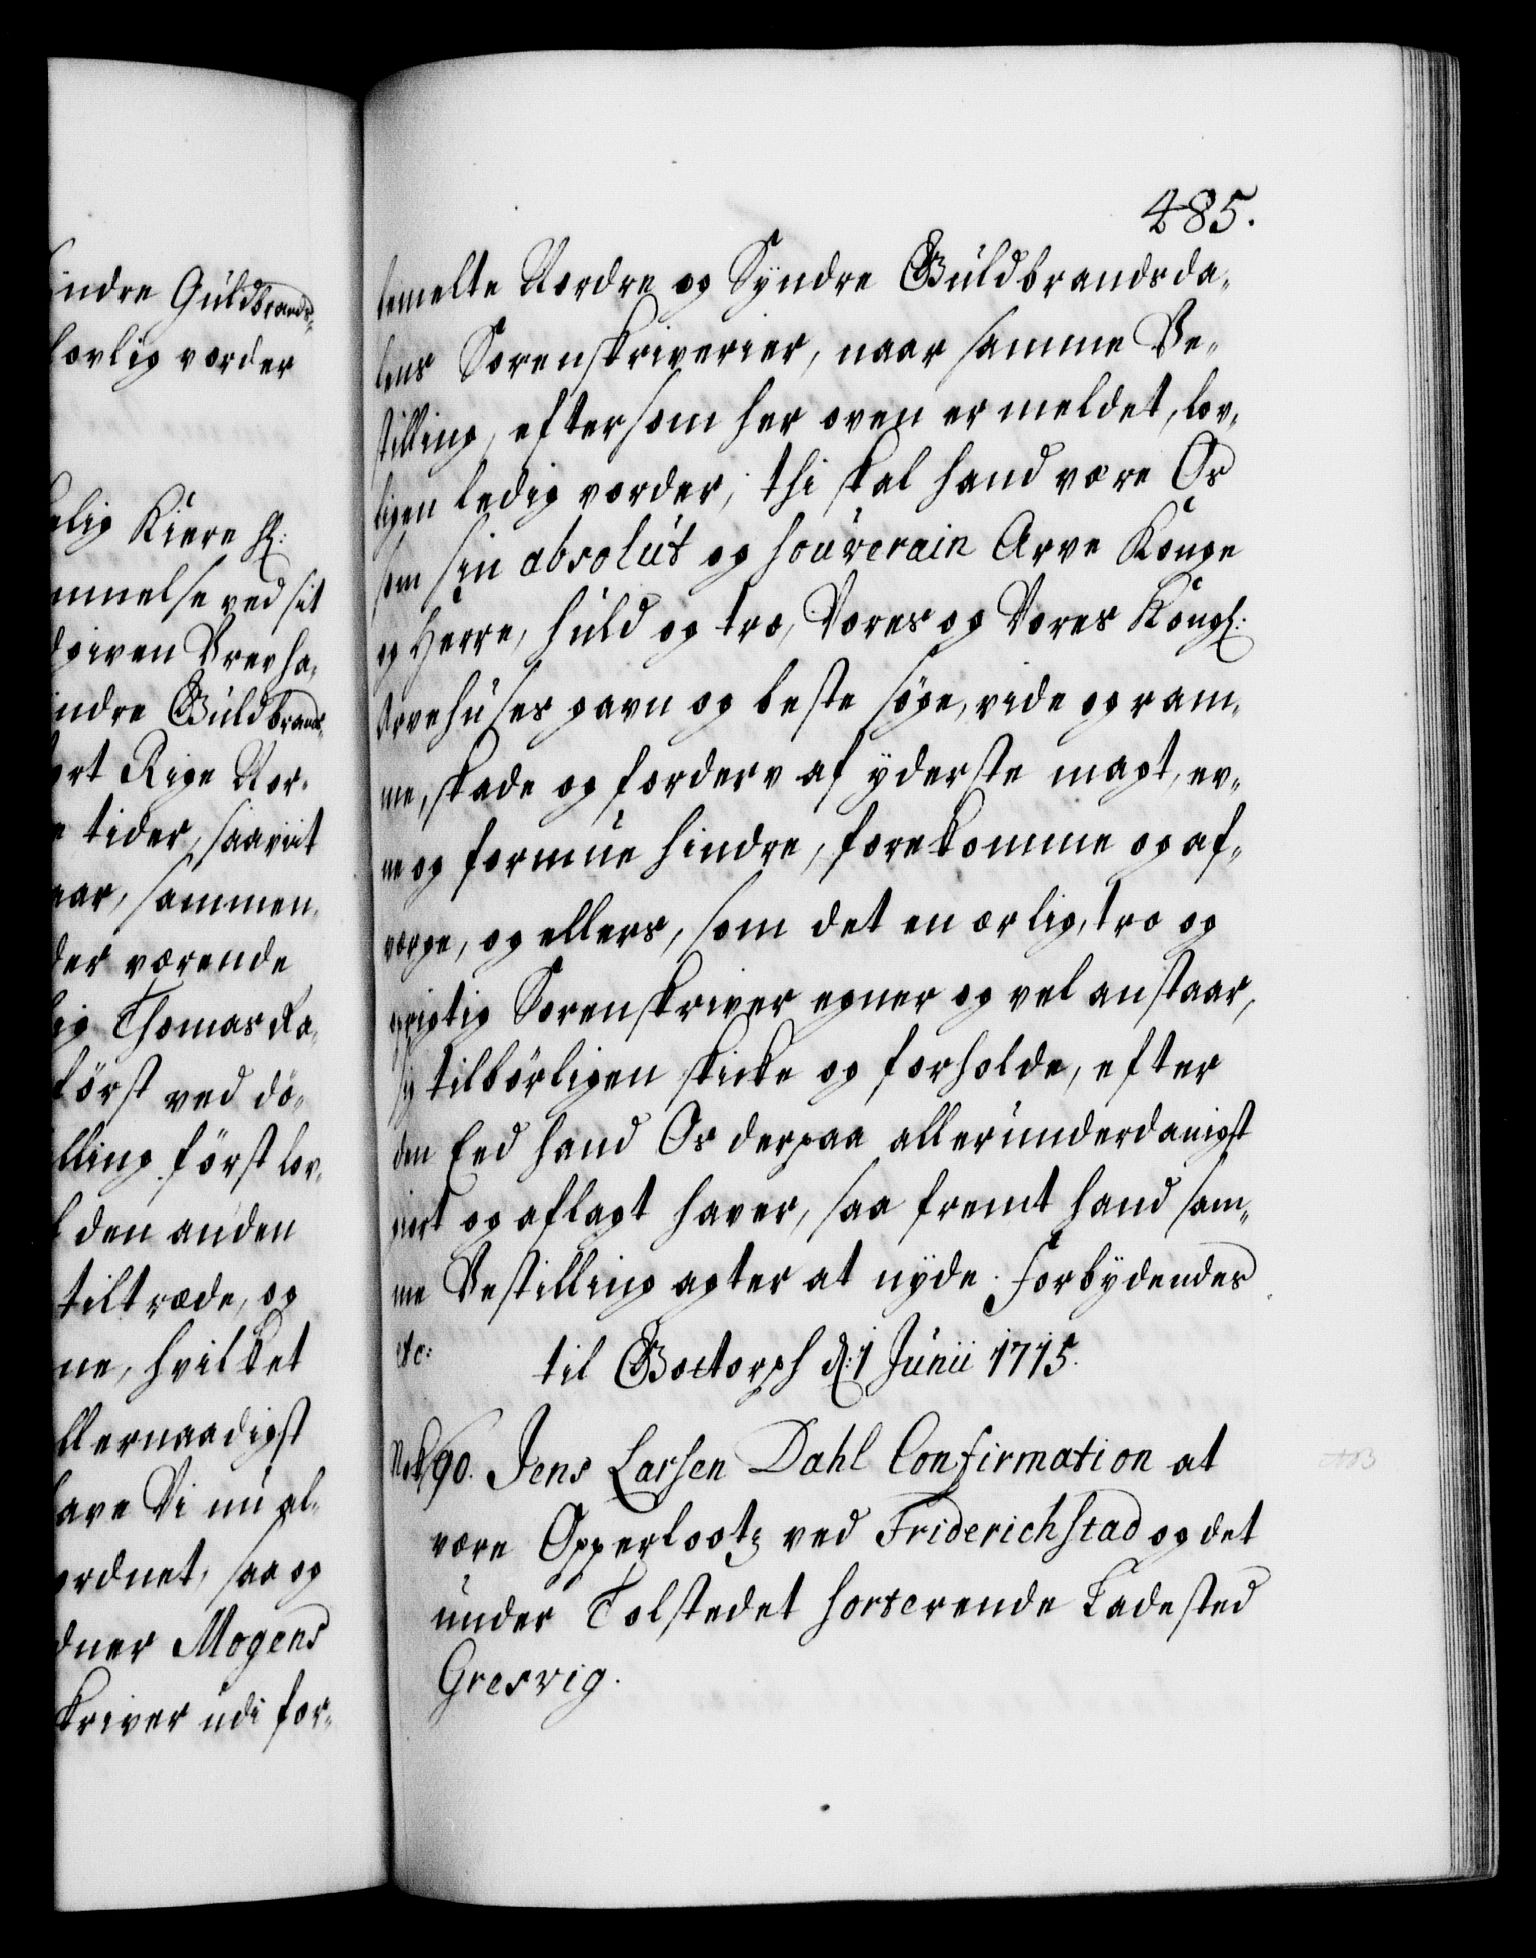 indre Guldbrands-
lovlig vorder
elig Kiere H:
mmelse ved sit
dgiven Brev ha-
indre Guldbrands-
ort Rige Nor-
e tider, saavit
aar, sammen-
der værende
lig Thomas Ra-
först ved dö-
lling först lov-
l den anden
tiltræde, og
ne, hvilket
llernaadigst
have Vi nu al-
ordnet, saa og
dner Mogens
skriver udi for-
485.
bemelte Nordre og Syndre Guldbrandsda-
lens Sorenskriverier, naar samme Be-
stilling, eftersom her oven er meldet, lov-
ligen ledig vorder, thi skal hand være Os
som sin absolut og souverain Arve Konge
og Herre, huld og tro, Vores og Vores Kongl:
Arvehuses gavn og beste söge, vide og ram-
me, skade og forderv af yderste magt, ev-
ne og formue hindre, forekomme og af-
verge, og ellers, som det en ærlig, tro og
rigtig Sorenskriver egner og vel anstaar,
sig tilbörligen skicke og forholde, efter
den Eed hand Os derpaa allerunderdanigst
giort og aflagt haver, saa fremt hand sam-
me Bestilling agter at nyde. Forbydendes
etc: til Gottorph d: 1 Junii 1715.
90. Jens Larsen Dahl Confirmation at
være Opperlootz ved Friderichstad og det
under Tolstedet sorterende Ladested
Gresvig.